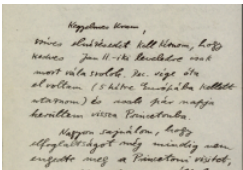 Kegyelmes Uram,
szíves elnézését kell kérnem, hogy
kedves Jan 11.-iki levelére csak
most válaszolok. Dec. vége óta
el voltam (5 hétre Európába kellett
utaznom) és csak pár napja
kerültem vissza Princetonba.
Nagyon sajnálom, hogy
elfoglaltságot még mindig nem
engedte meg a Princetoni